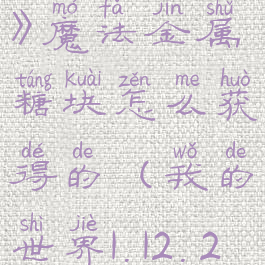 mó fǎ jīn shǔ
》魔法金属
táng kuài zěn me huò
糖块怎么获
dé de wǒ de
得的（我的
shì jiè
世界1.12.2